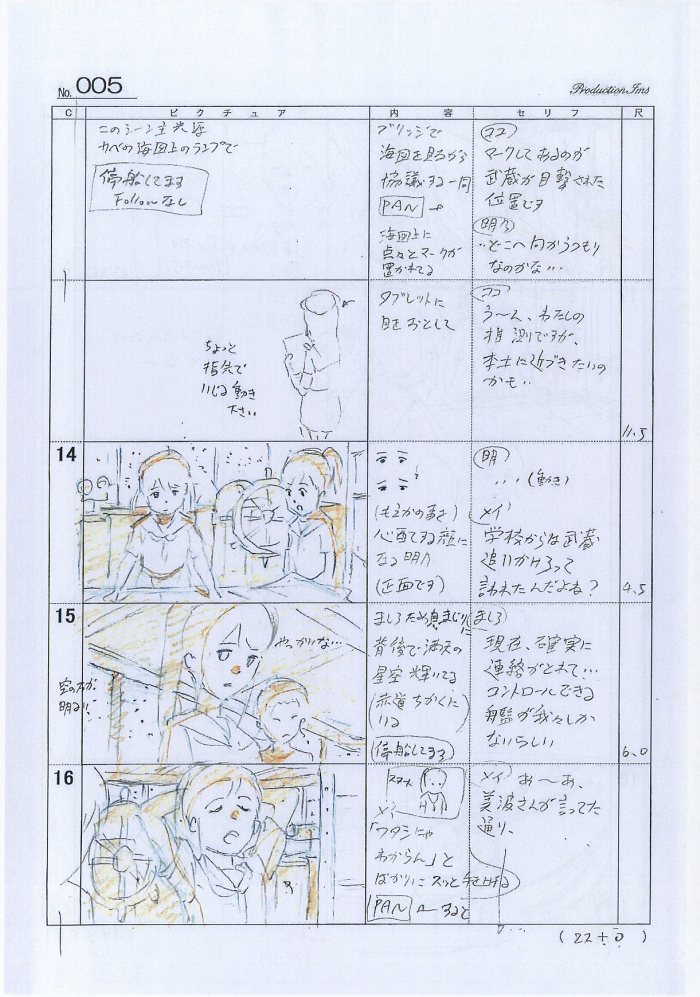 No. 005
Production Ims
C
ピクチュア
内容
セリフ
尺
このシーン主光源
カベの海図上のランプで
停船してます
Followなし
ブリッジで
海図を見ながら
協議する一同
PAN
海図上に
点々とマークが
置かれてる
ココ
マークしてあるのが
武蔵が目撃された
位置です
明乃
‥どこへ向かうつもり
なのかな…
ちょっと
指先で
いじる動き
ださい
タブレットに
目をおとして
ココ
う〜ん、わたしの
推測ですが、
本土に近づきたいの
かも‥
11.5
14
(もえかの事を)
心配する顔に
なる明乃
(正面です)
明
…(動き)
メイ
学校からな武蔵
追いかけろって
言われたんだよね?
4.5
15
空の方が
明るい
やっかいな…
ましろため息まじりに
背後で満天の
星空輝いてる
(赤道ちかくに
いる)
(停船してます)
ましろ
現在、確実に
連絡がとれて…
コントロールできる
艦が我々しか
ないらしい
6.0
16
スタート
メイ
「ワタシにゃ
わからん」と
ばかりにスッと手を上げる
PAN
メイ
あ〜あ、
美波さんが言ってた
通り、
(22+0)